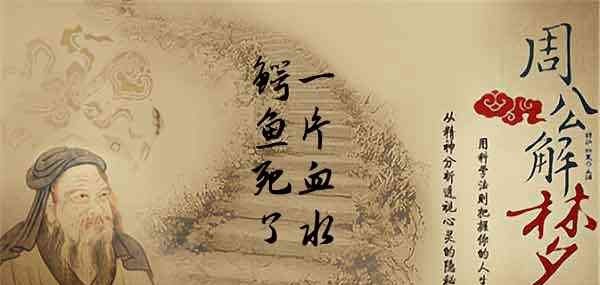 周公解梦
用科学法则把握你的人生
从精神分析透视心灵的隐秘
一片血水
鳄鱼死了